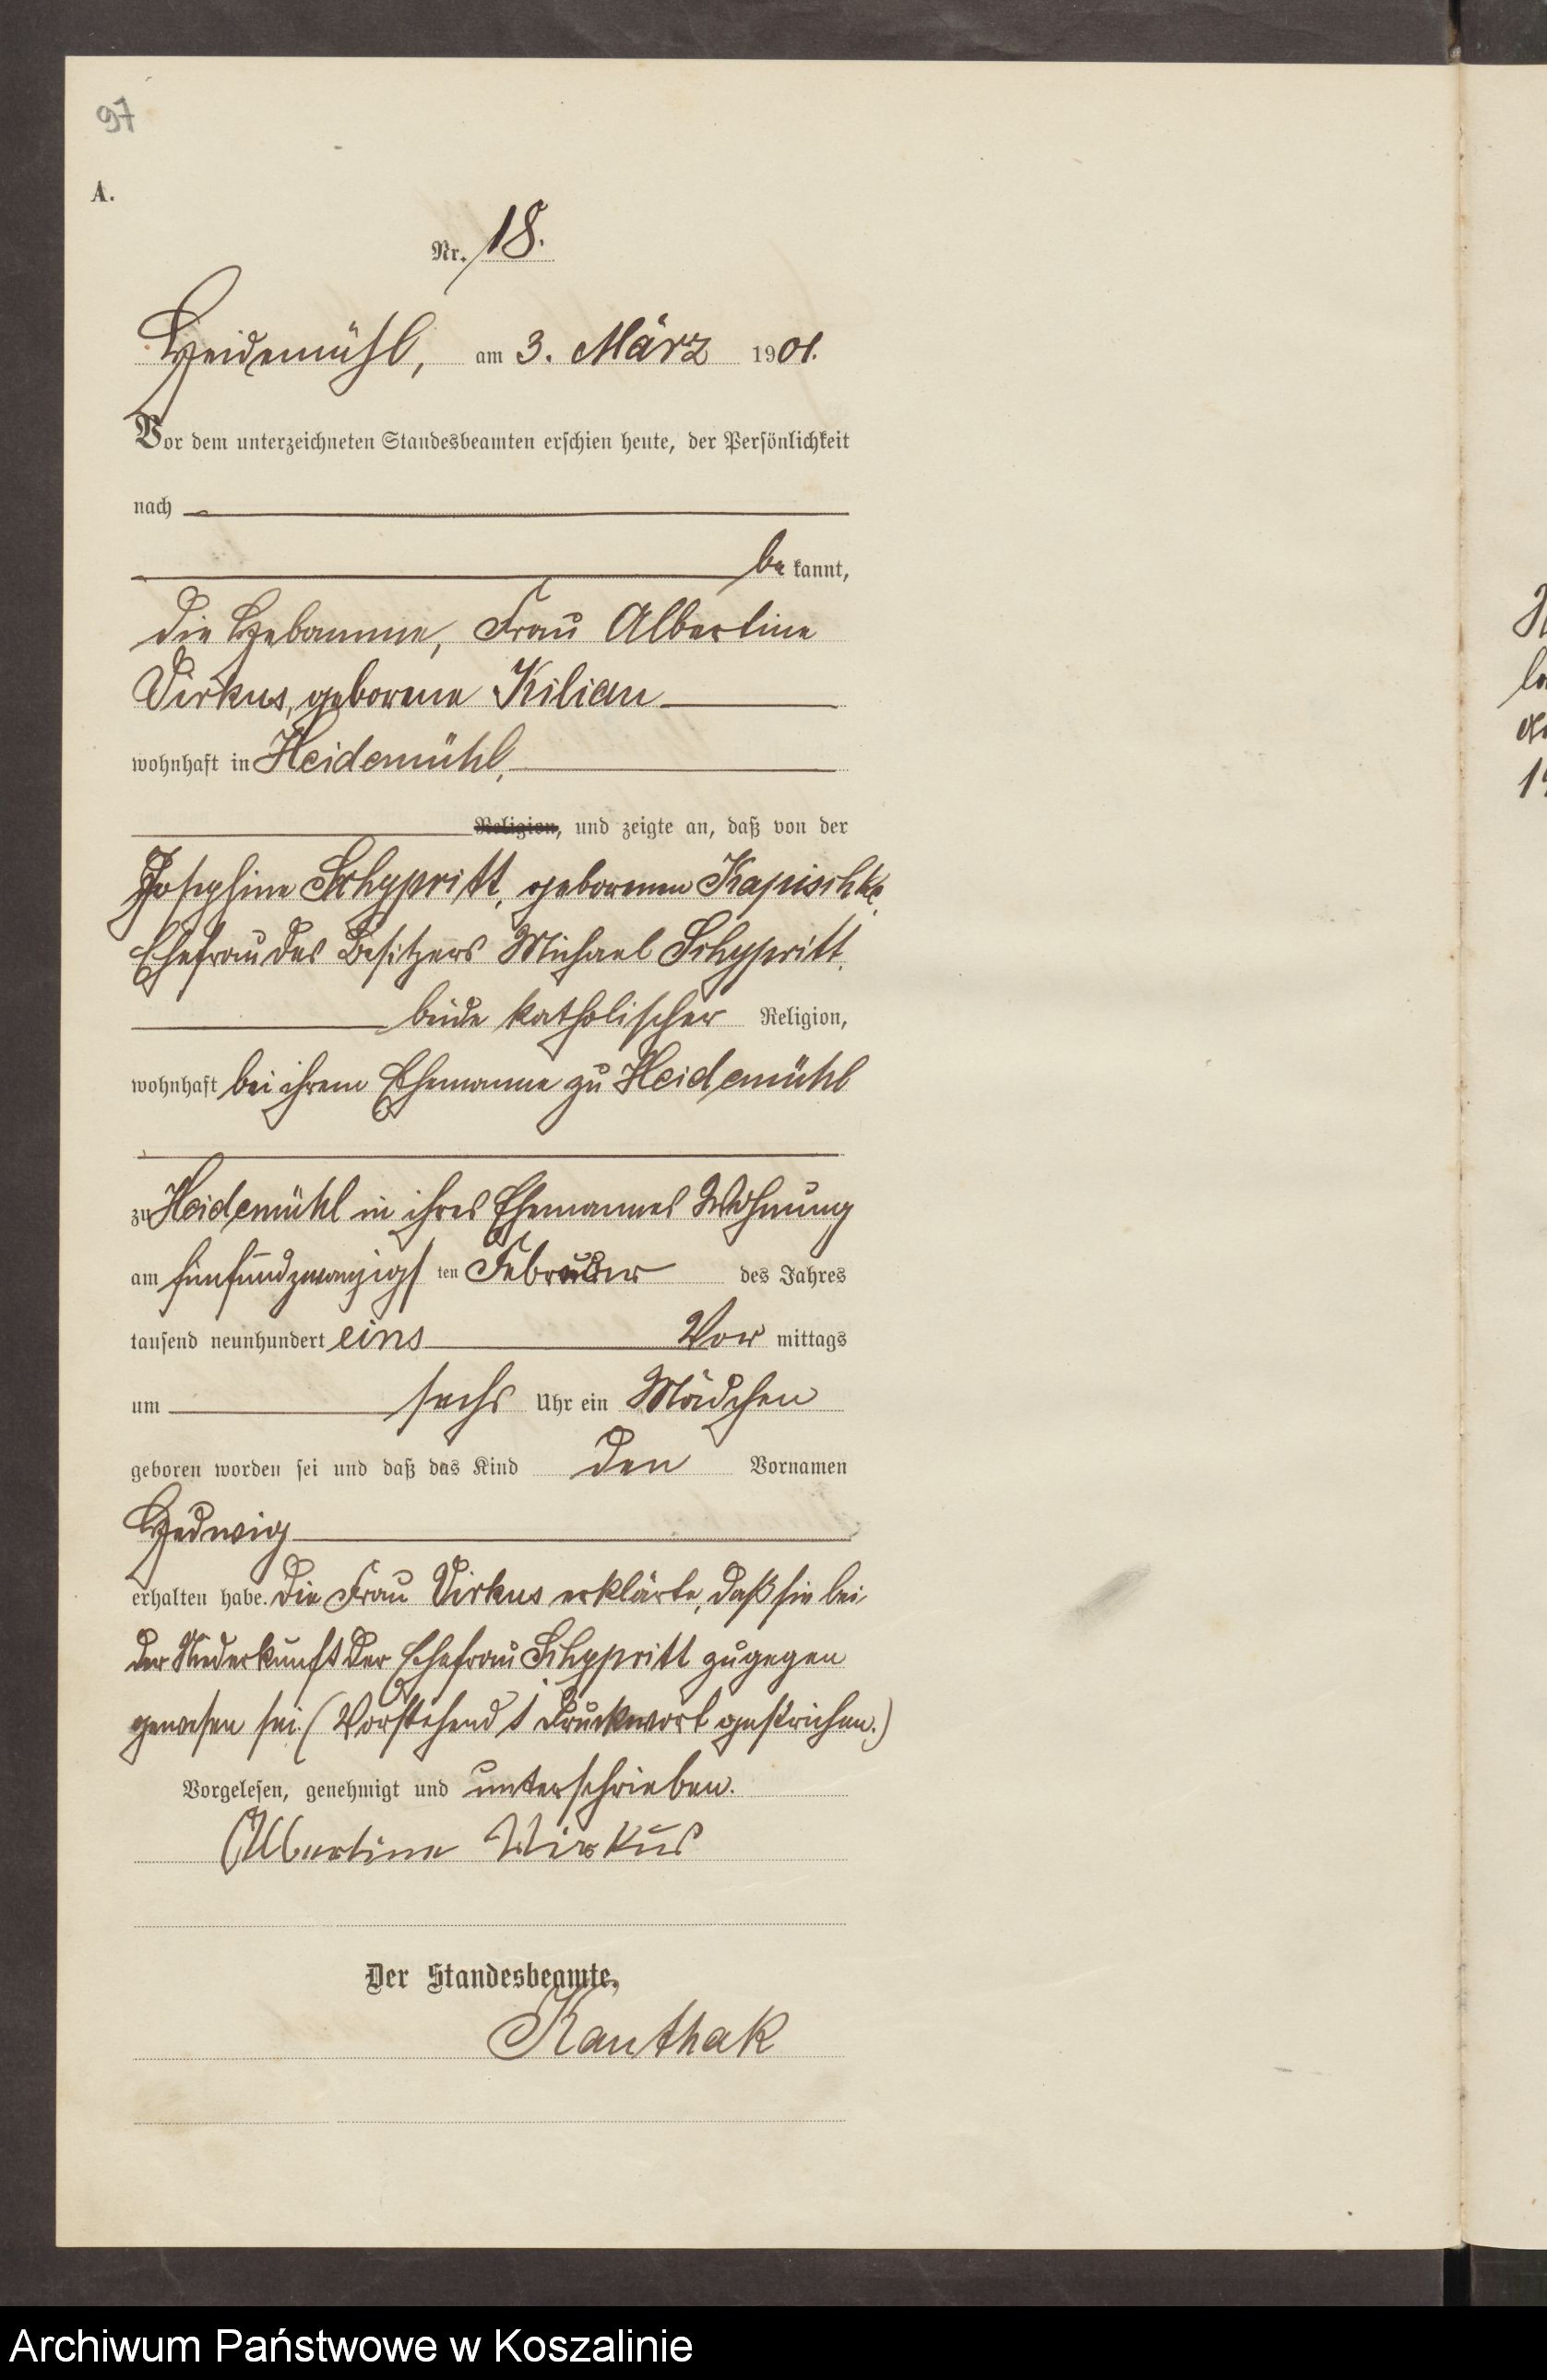 97
A.
Nr. 18.
Heidemühl, am 3. März 1901.
Vor dem unterzeichneten Standesbeamten erschien heute, der Persönlichkeit
nach
bekannt,
die Hebamme, Frau Albertine
Virkus, geborene Kilian
wohnhaft in Heidemühl,
Religion, und zeigte an, daß von der
Josephine Schypritt, geborenen Kapischke,
Ehefrau des Besitzers Michael Schypritt,
beide katholischer Religion,
wohnhaft bei ihrem Ehemanne zu Heidemühl
zu Heidemühl in ihres Ehemannes Wohnung
am fünfundzwanzigsten Februar des Jahres
tausend neunhundert eins Vormittags
um sechs Uhr ein Mädchen
geboren worden sei und daß das Kind den Vornamen
Hedwig
erhalten habe. Die Frau Virkus erklärte, daß sie bei
der Niederkunft der Ehefrau Schypritt zugegen
gewesen sei. (Vorstehend 1 Druckwort gestrichen.)
Vorgelesen, genehmigt und unterschrieben.
Albertine Wirkus
Der Standesbeamte.
Kanthak
Archiwum Państwowe w Koszalinie